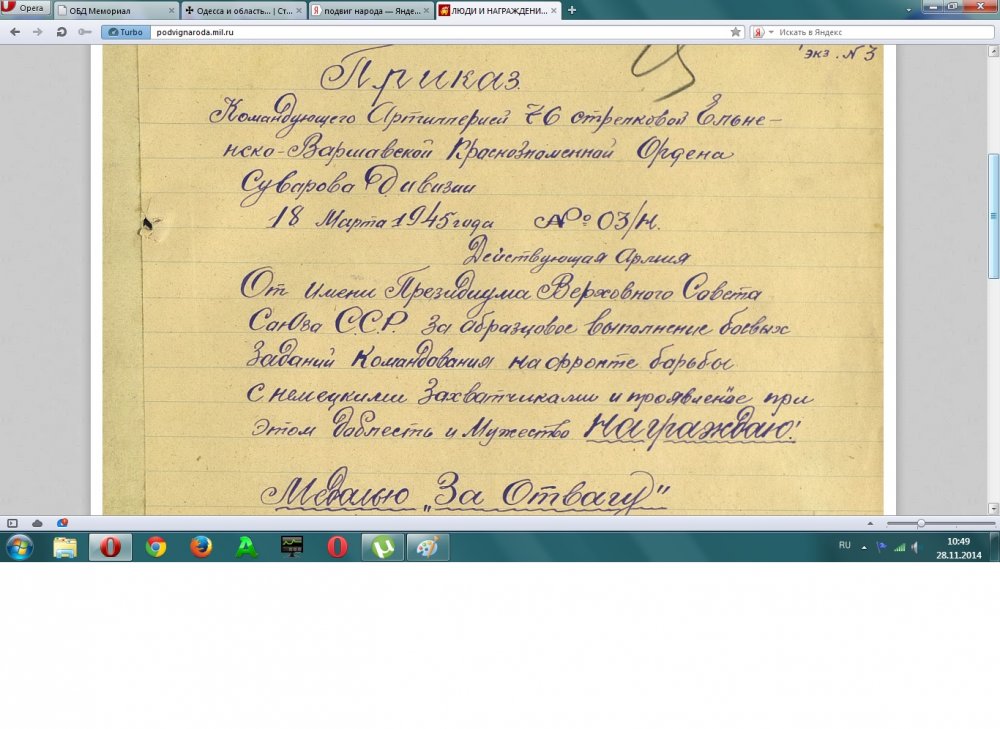 Opera
ОБД Мемориал
Одесса и область... | Ст...
подвиг народа — Янде...
ЛЮДИ И НАГРАЖДЕНИ...
Turbo
podvignaroda.mil.ru
Искать в Яндекс
экз. № 3
Приказ.
Командующего Артиллерией 76 стрелковой Ельне-
нско-Варшавской Краснознаменной Ордена
Суварова Дивизии
18 Марта 1945 года № 03/н.
Действующая Армия
От имени Президиума Верховного Совета
Саюза С.С.Р. за абразцовое выполнение боевых
Заданий Командования на фронте барьбы
с немецкими Захватчиками и проявленое при
этом доблесть и Мужество Награждаю!
Медалью „За Отвагу"
RU
10:49
28.11.2014